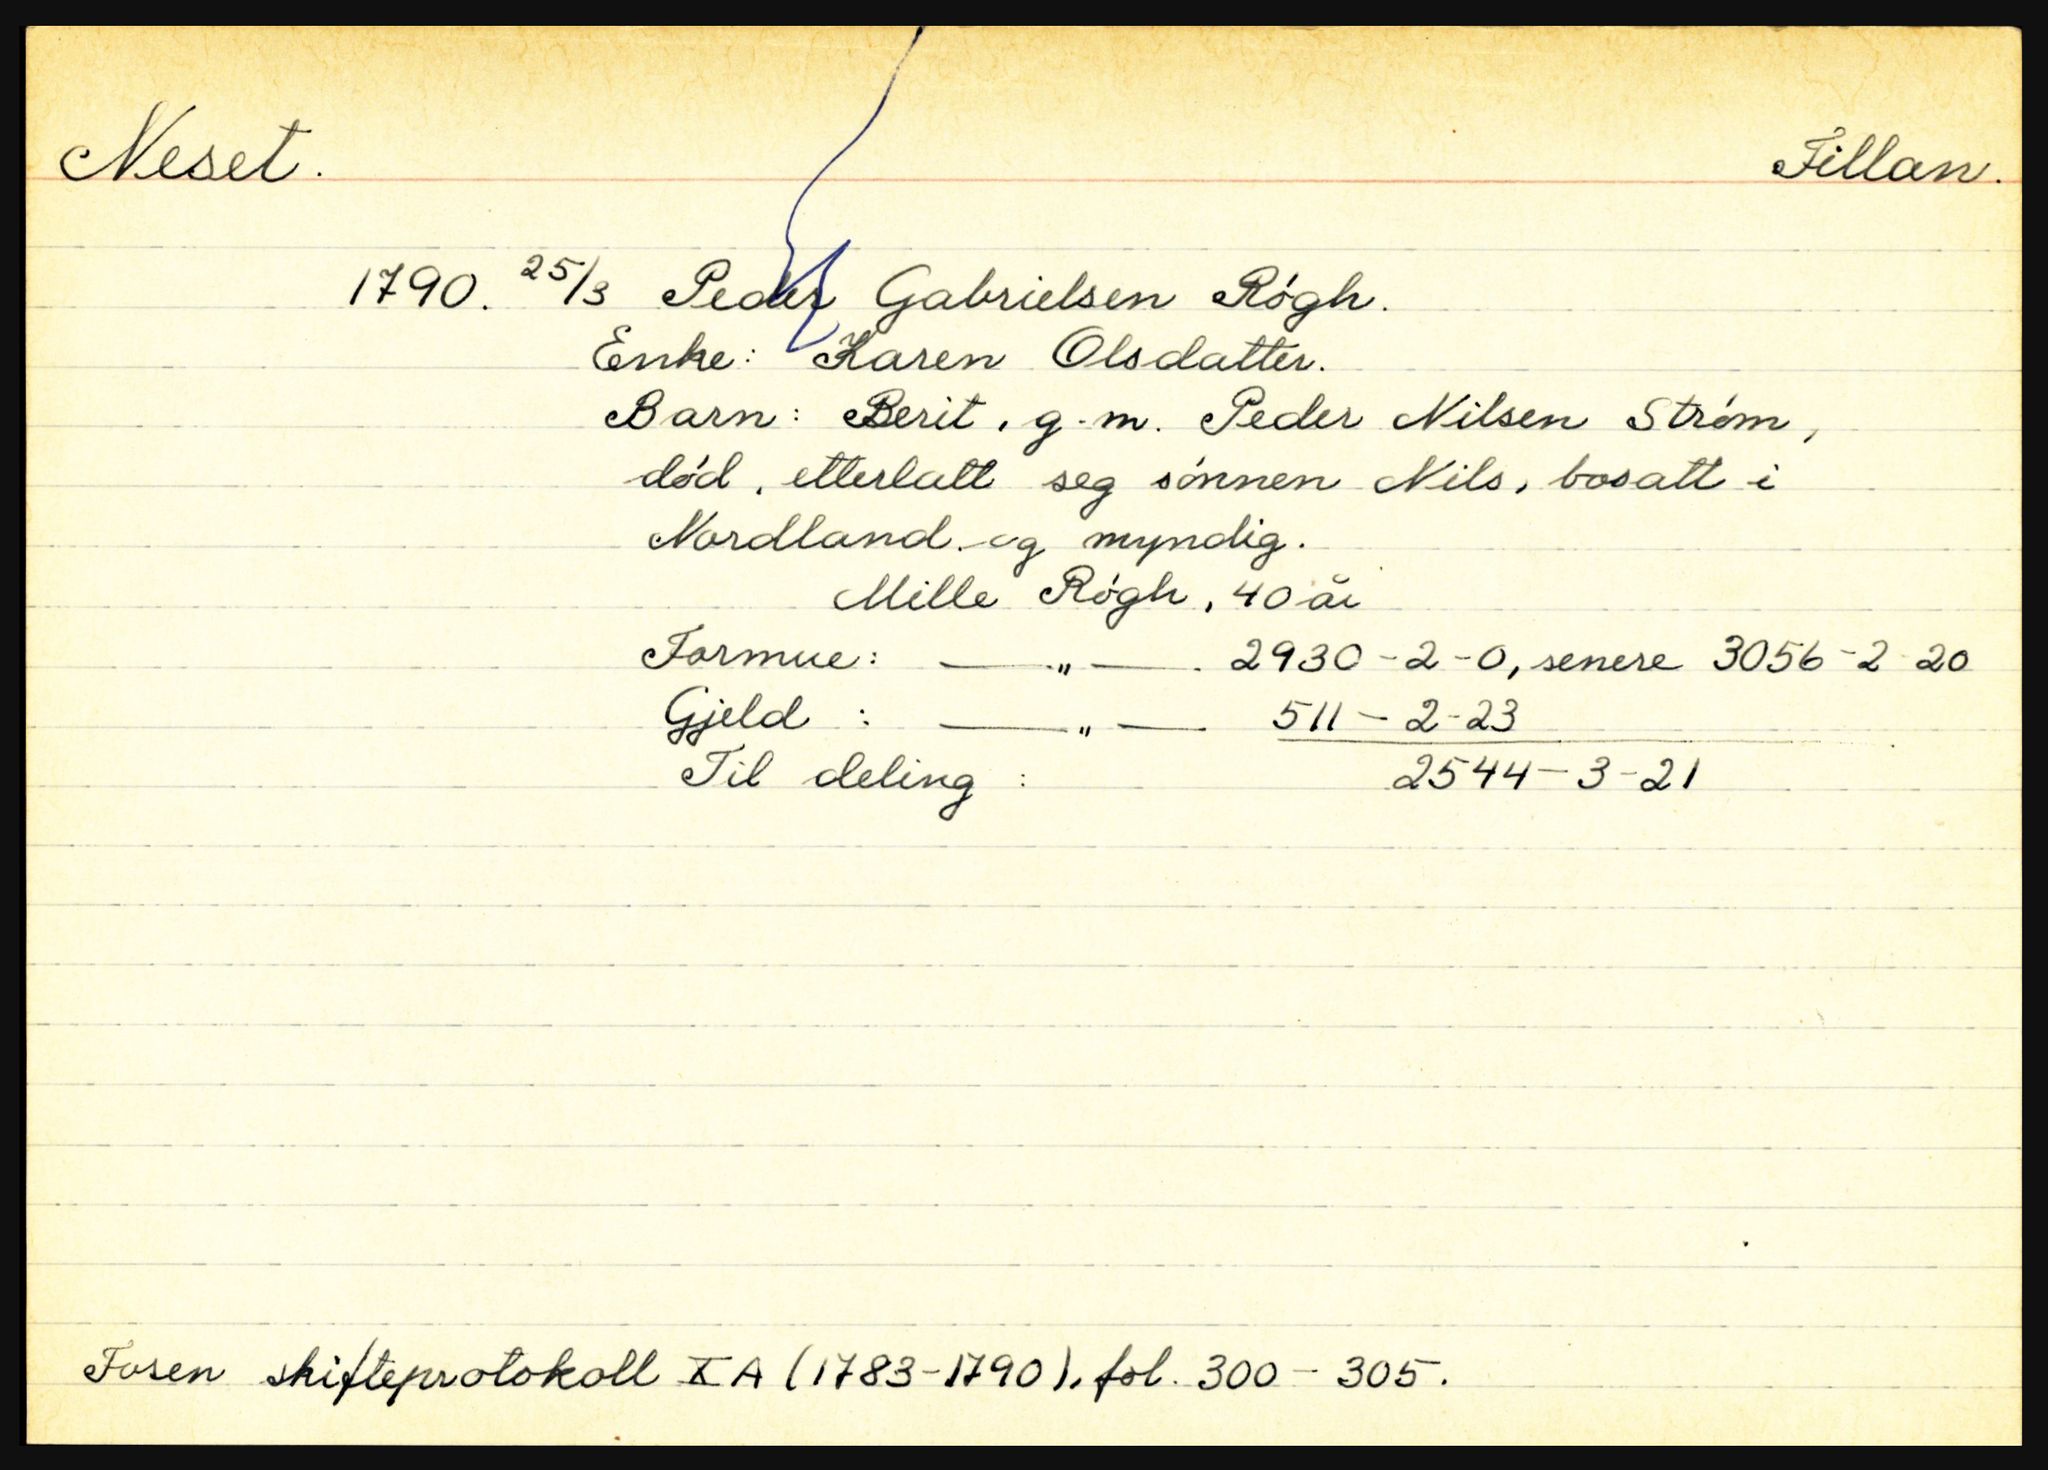 Neset. Fillan.
1790. 25/3 Peder Gabrielsen Røgh.
Enke: Karen Olsdatter.
Barn: Berit, g.m. Peder Nilsen Strøm,
død, etterlatt seg sønnen Nils, bosatt i
Nordland og myndig.
Mille Røgh, 40 år
Formue: —„— 2930-2-0, senere 3056-2-20
Gjeld : —„— 511-2-23
Til deling : 2544-3-21
Fosen skifteprotokoll X A (1783-1790), fol. 300-305.